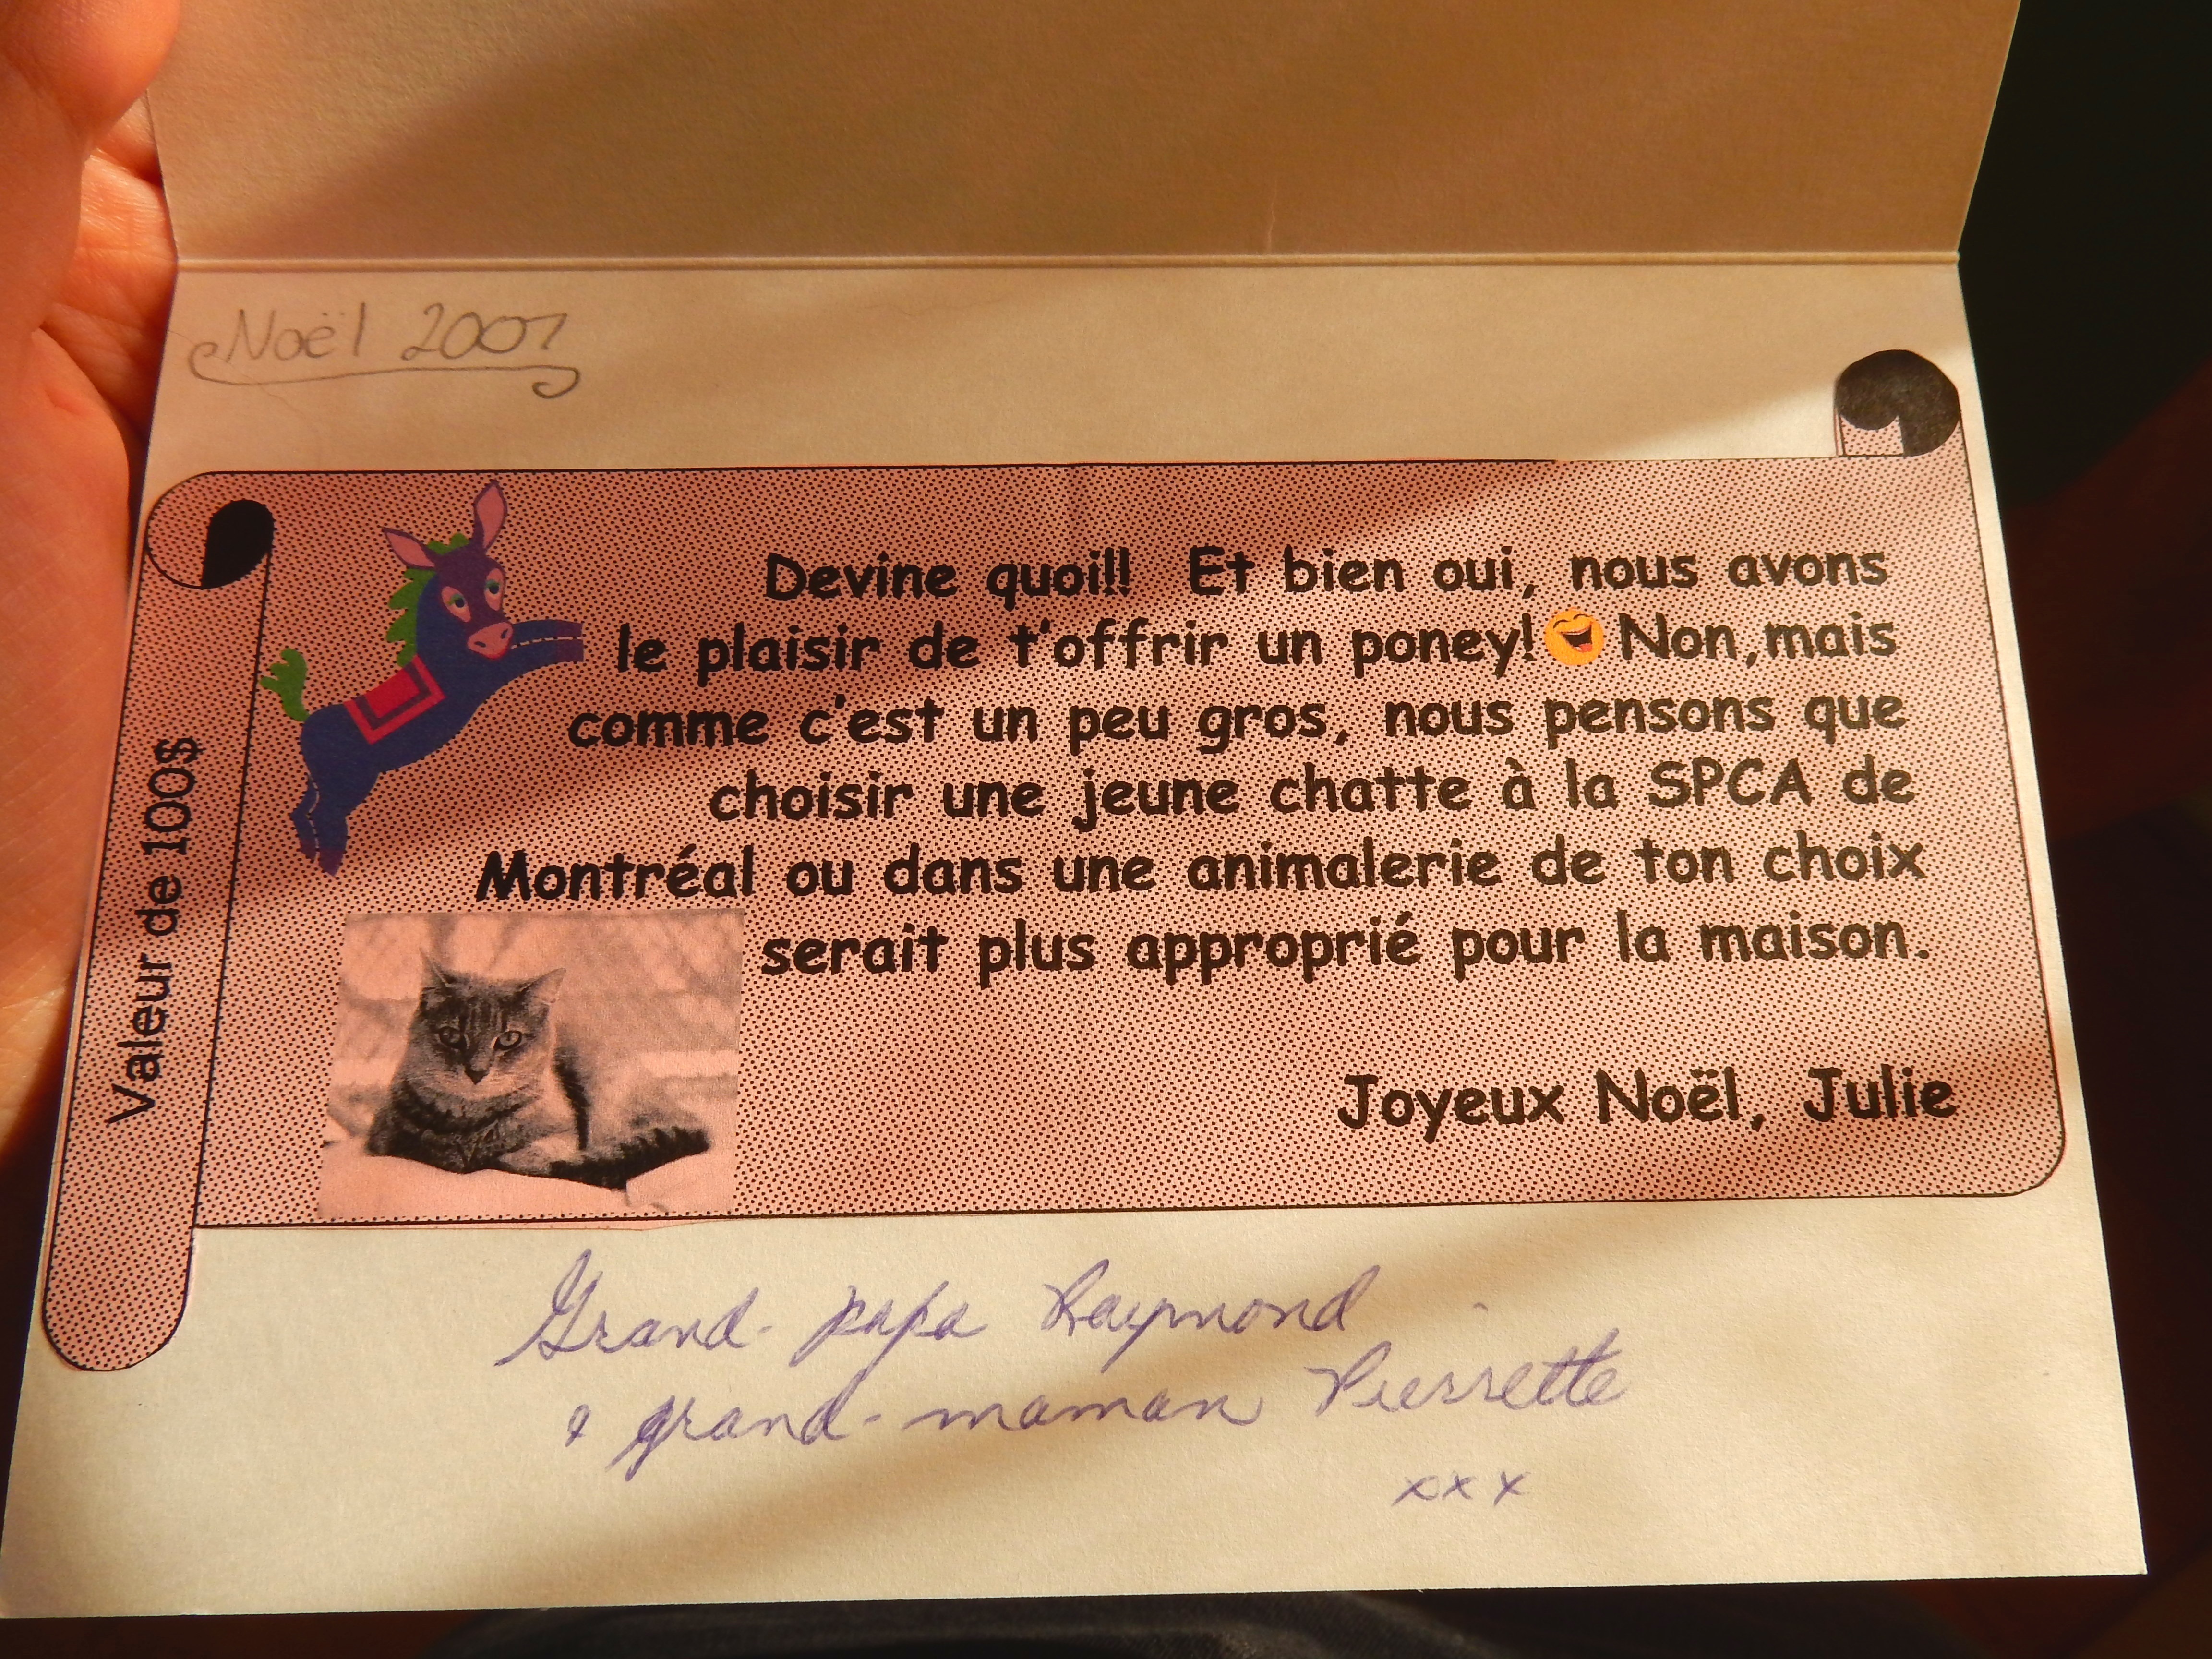 Noël 2007
Valeur de 100$
Devine quoi!! Et bien oui, nous avons
le plaisir de t'offrir un poney! Non,mais
comme c'est un peu gros, nous pensons que
choisir une jeune chatte à la SPCA de
Montréal ou dans une animalerie de ton choix
serait plus approprié pour la maison.
Joyeux Noël, Julie
Grand-papa Raymond
& grand-maman Pierrette
xxx